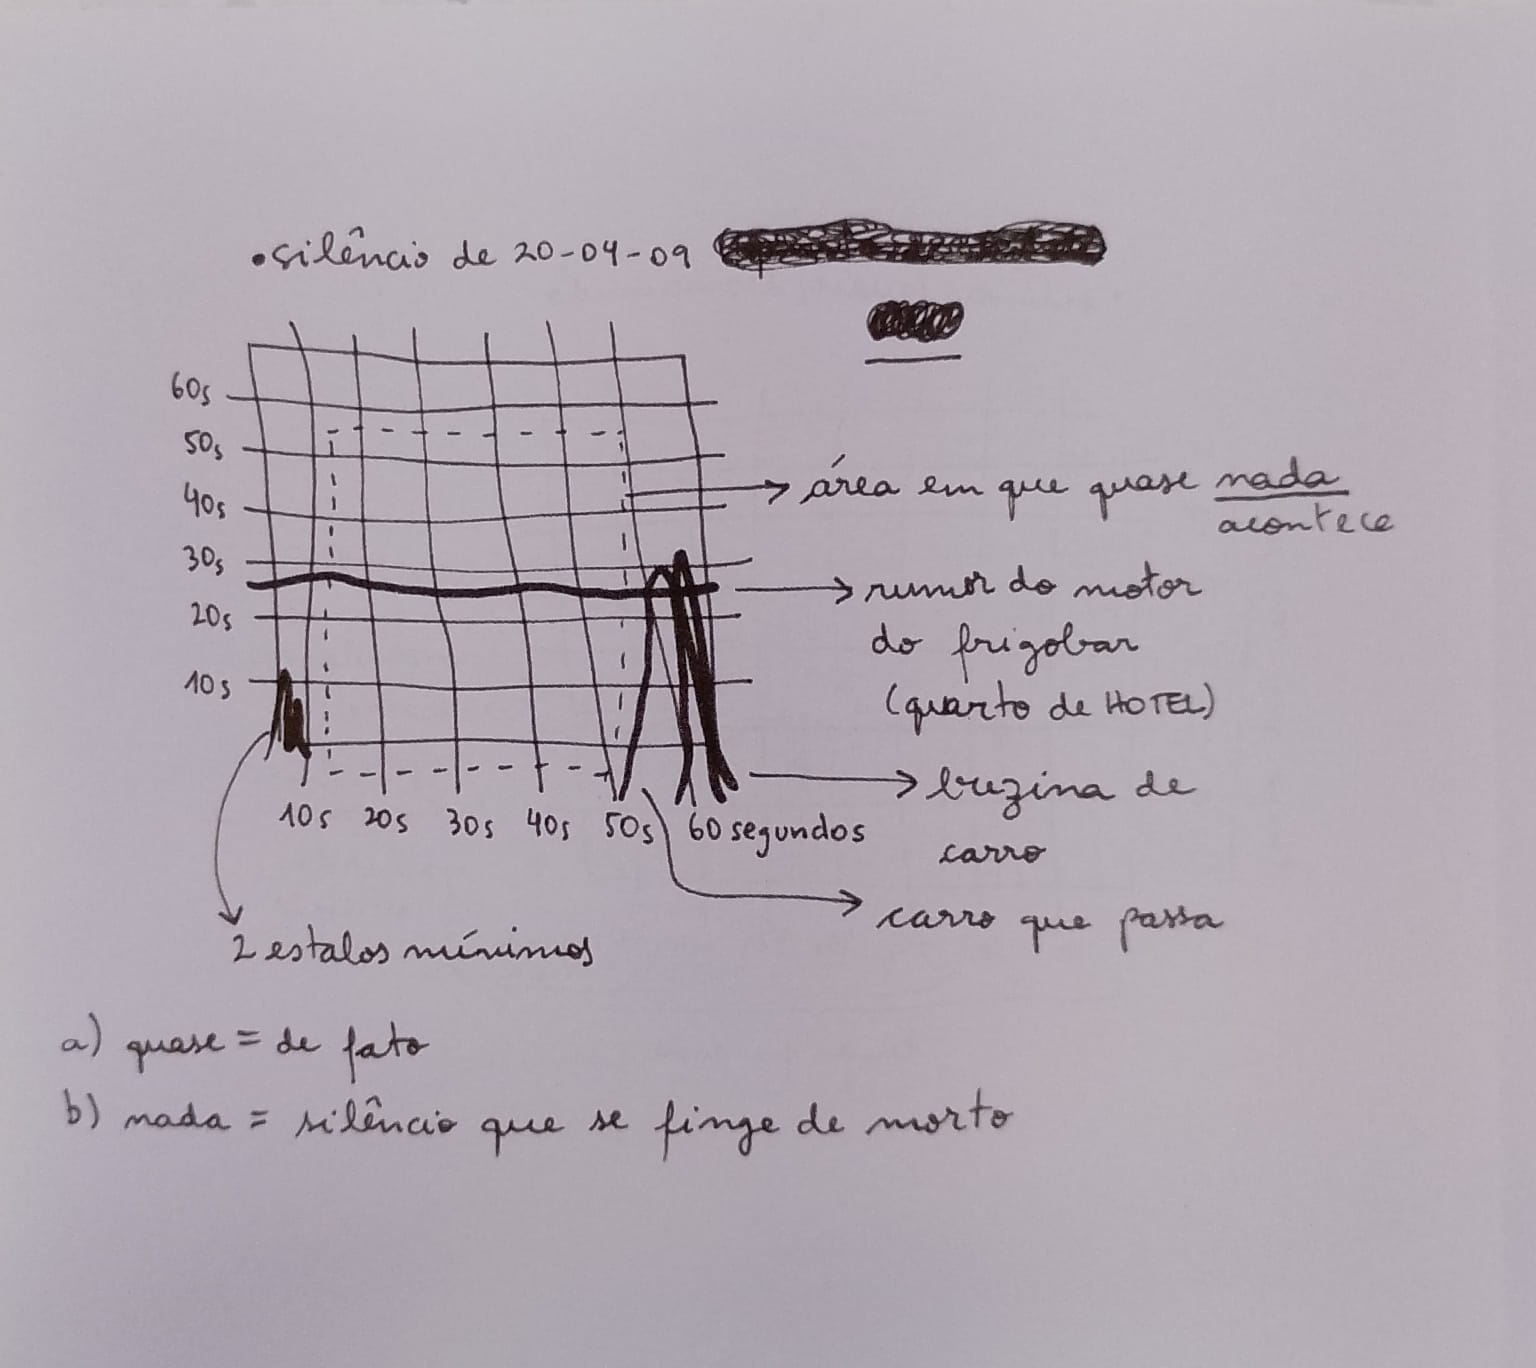 • silêncio de 20-04-09
60s
50s
40s
30s
20s
10s
10s 20s 30s 40s 50s 60 segundos
área em que quase nada
acontece
rumor do motor
do frigobar
(quarto de HOTEL)
buzina de
carro
carro que passa
2 estalos mínimos
a) quase = de fato
b) nada = silêncio que se finge de morto